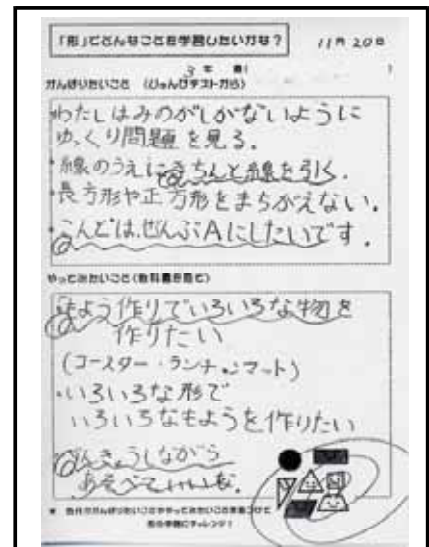 「形」でどんなことを学習したいかな？ 11月20日
3年
がんばりたいこと （じゅんびテストから）
わたしはみのがしがないように
ゆっくり問題を見る.
・線のうえにきちんと線を引く.
・長方形や正方形をまちがえない.
・こんどは、ぜんぶAにしたいです.
やってみたいこと(教科書を見て)
・もよう作りでいろいろな物を
作りたい
(コースター・ランチョンマット)
・いろいろな形で
いろいろなもようを作りたい
べんきょうしながら
あそべていいな.
形の学習にチャレンジ！